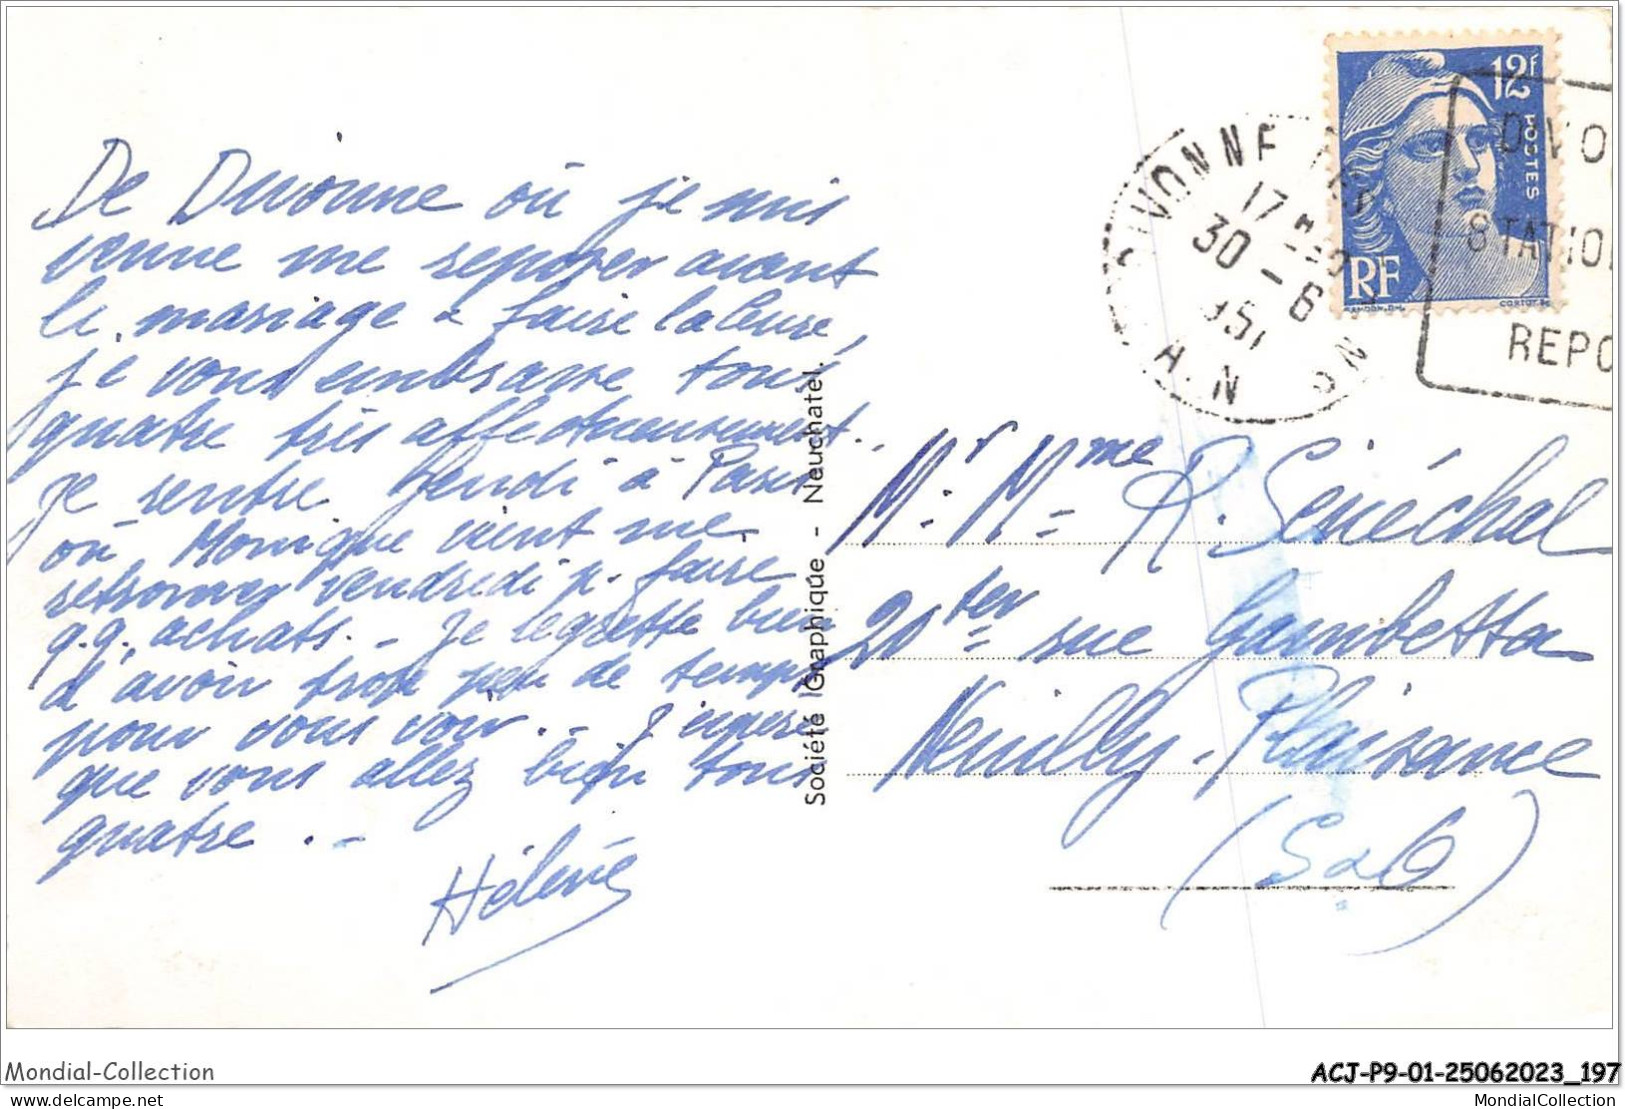 De Divonne où je suis
venue me reposer avant
le mariage à faire
je vous embrasse tous
quatre très affectueusement.
Je rentre Jeudi à Paris
où Monique vient me
retrouver vendredi p. faire
q.q. achats. - Je regrette bien
d'avoir trop peu de temps
pour vous voir. - J'espère
que vous allez bien tous
quatre. -
Hélène
Société Graphique - Neuchatel.
12F
POSTES
RF
DIVONNE
17
30 - 6
1951
AIN
DIVO
STATION
REPO
Mr. Mme R. Sénéchal
20ter rue Gambetta
Neuilly-Plaisance
(S&O)
Mondial-Collection
ACJ-P9-01-25062023_197
delcampe.net
MondialCollection